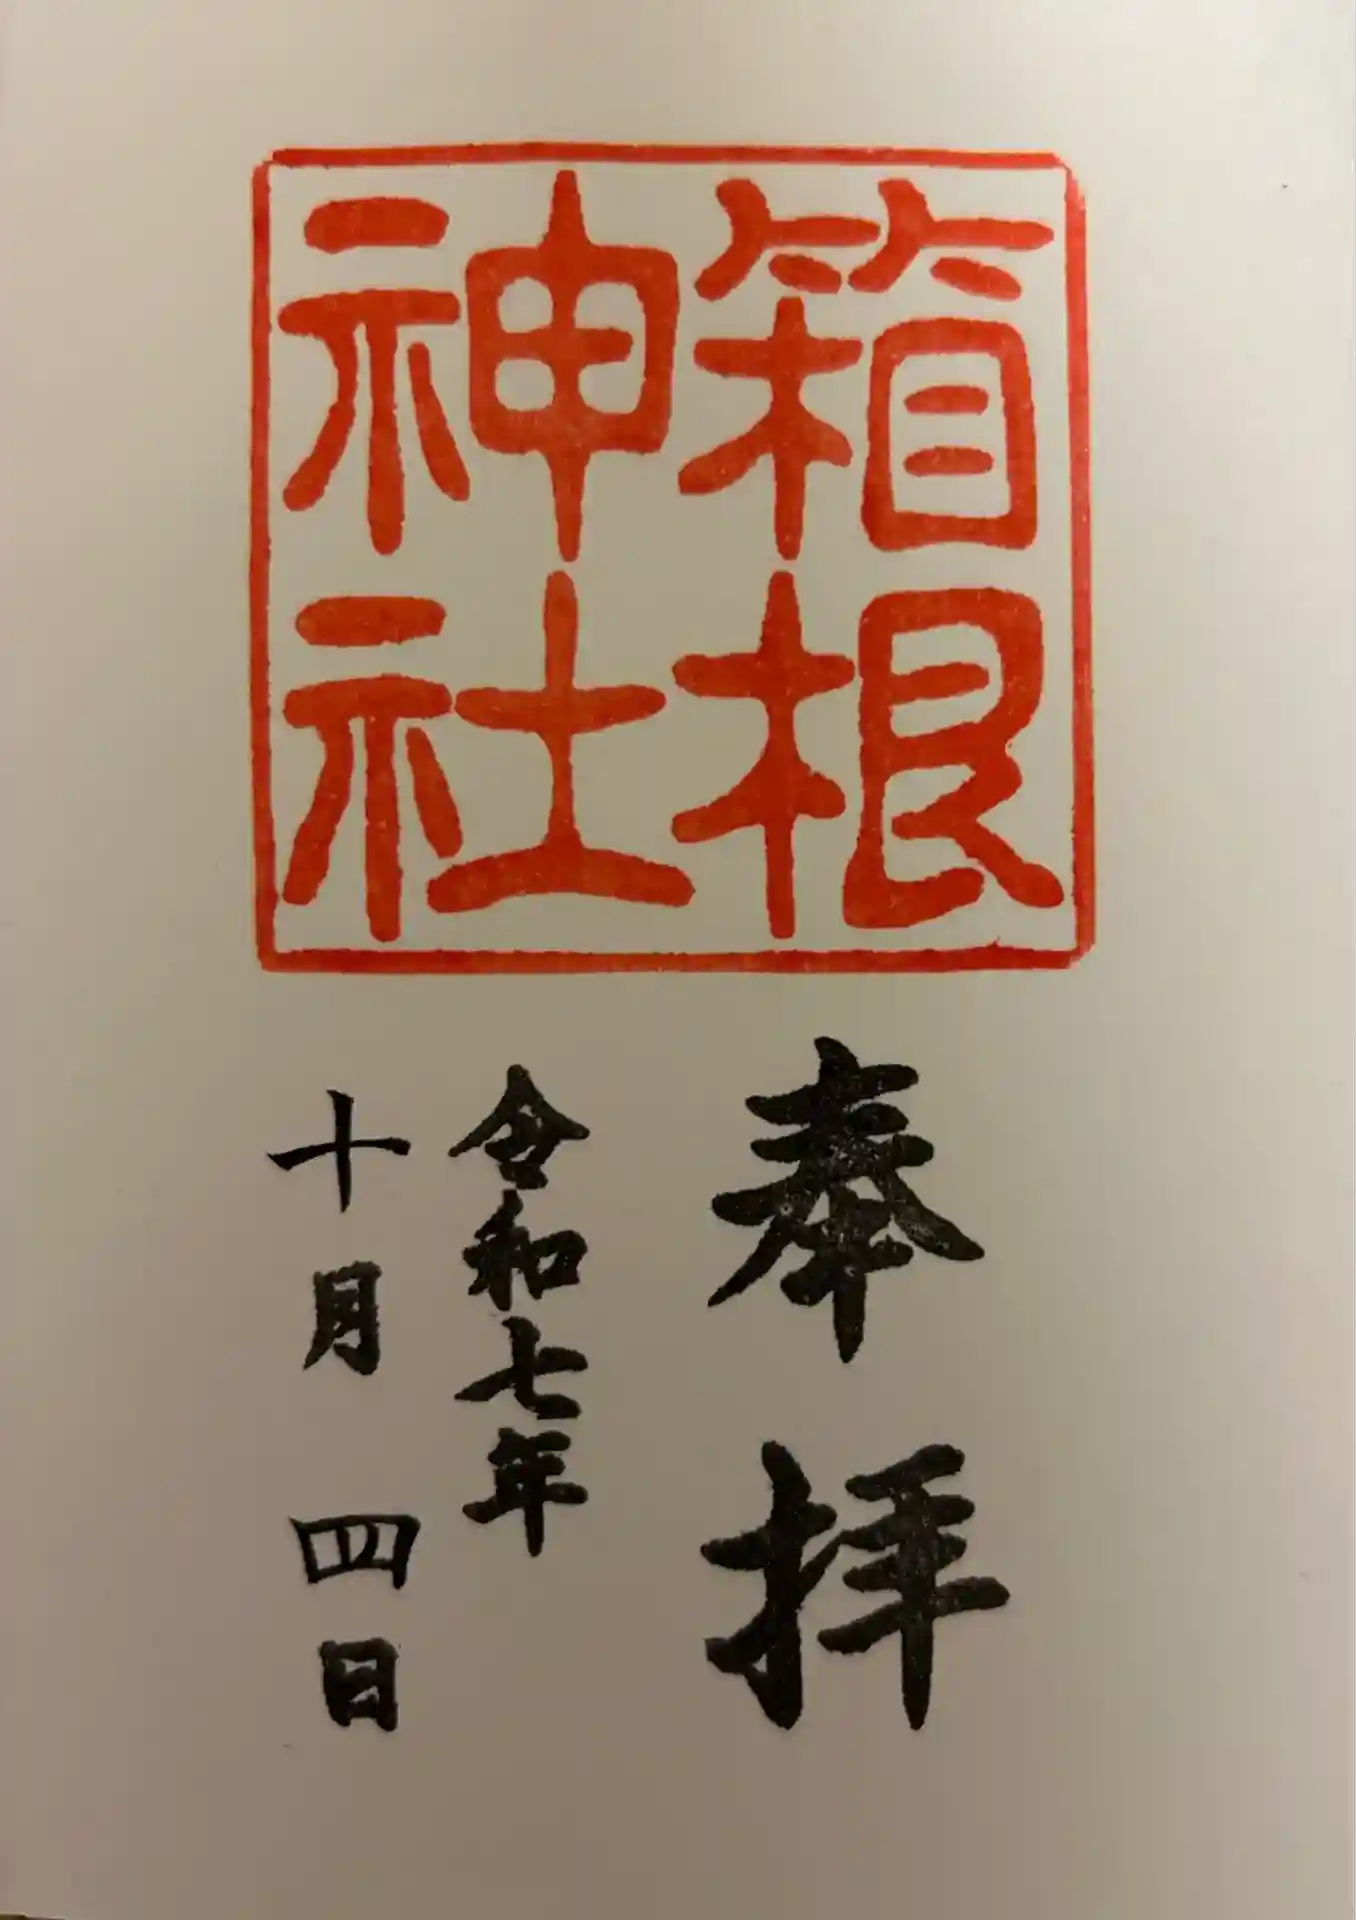 箱根
神社
奉拝
令和七年
十月四日